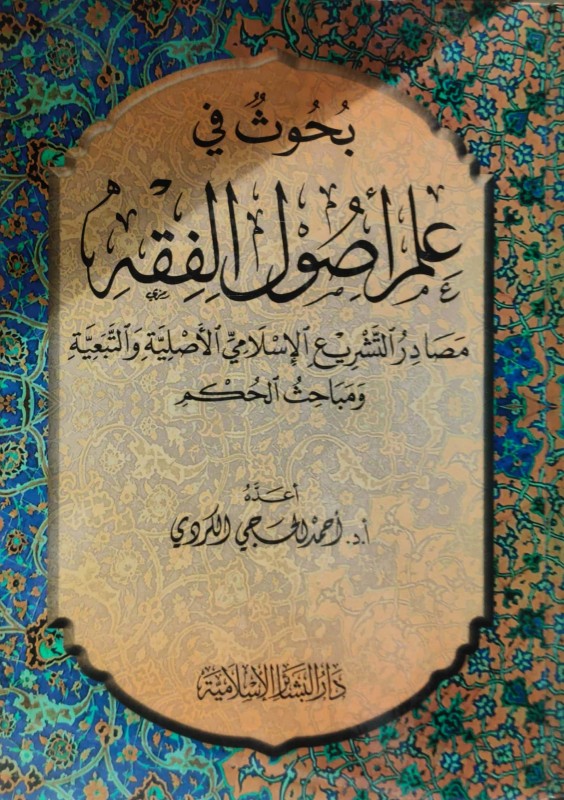 بُحُوثٌ فِي
عِلْمِ أُصُولِ الْفِقْهِ
مَصَادِرُ التَّشْرِيعِ الْإِسْلَامِيِّ الْأَصْلِيَّةِ وَالتَّبَعِيَّةِ
وَمَبَاحِثُ الْحُكْمِ
أَعَدَّهُ
أ.د. أحمد الحجي الكردي
دار البشائر الإسلامية